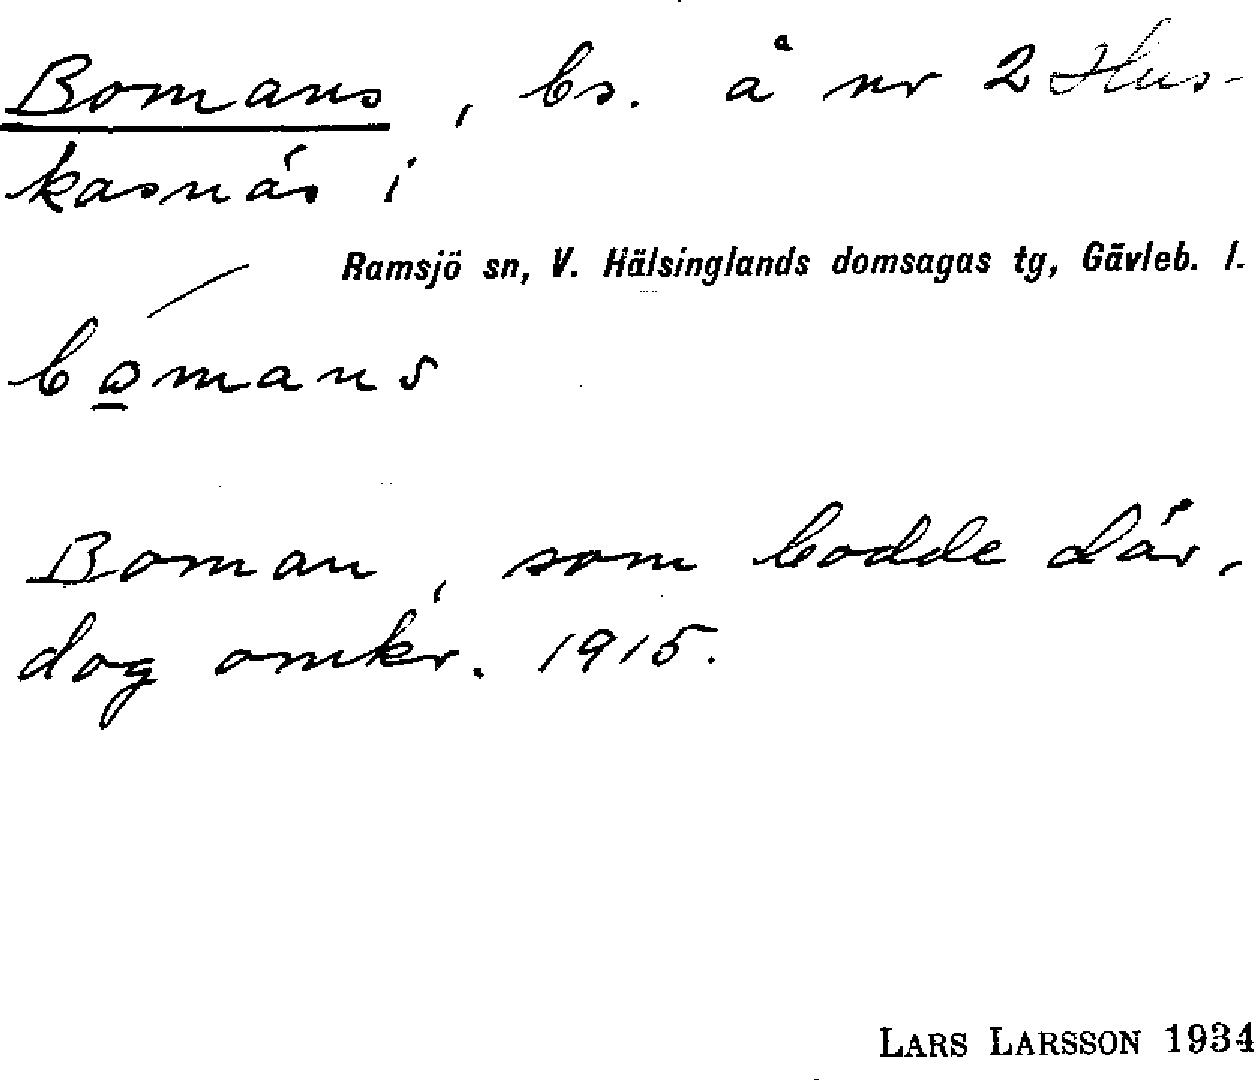 Bomans, bs. å nr 2 Hus-
kasnäs i
Ramsjö sn, V. Hälsinglands domsagas tg, Gävleb. l.
bomans
Boman, som bodde där,
dog omkr. 1915.
LARS LARSSON 1934